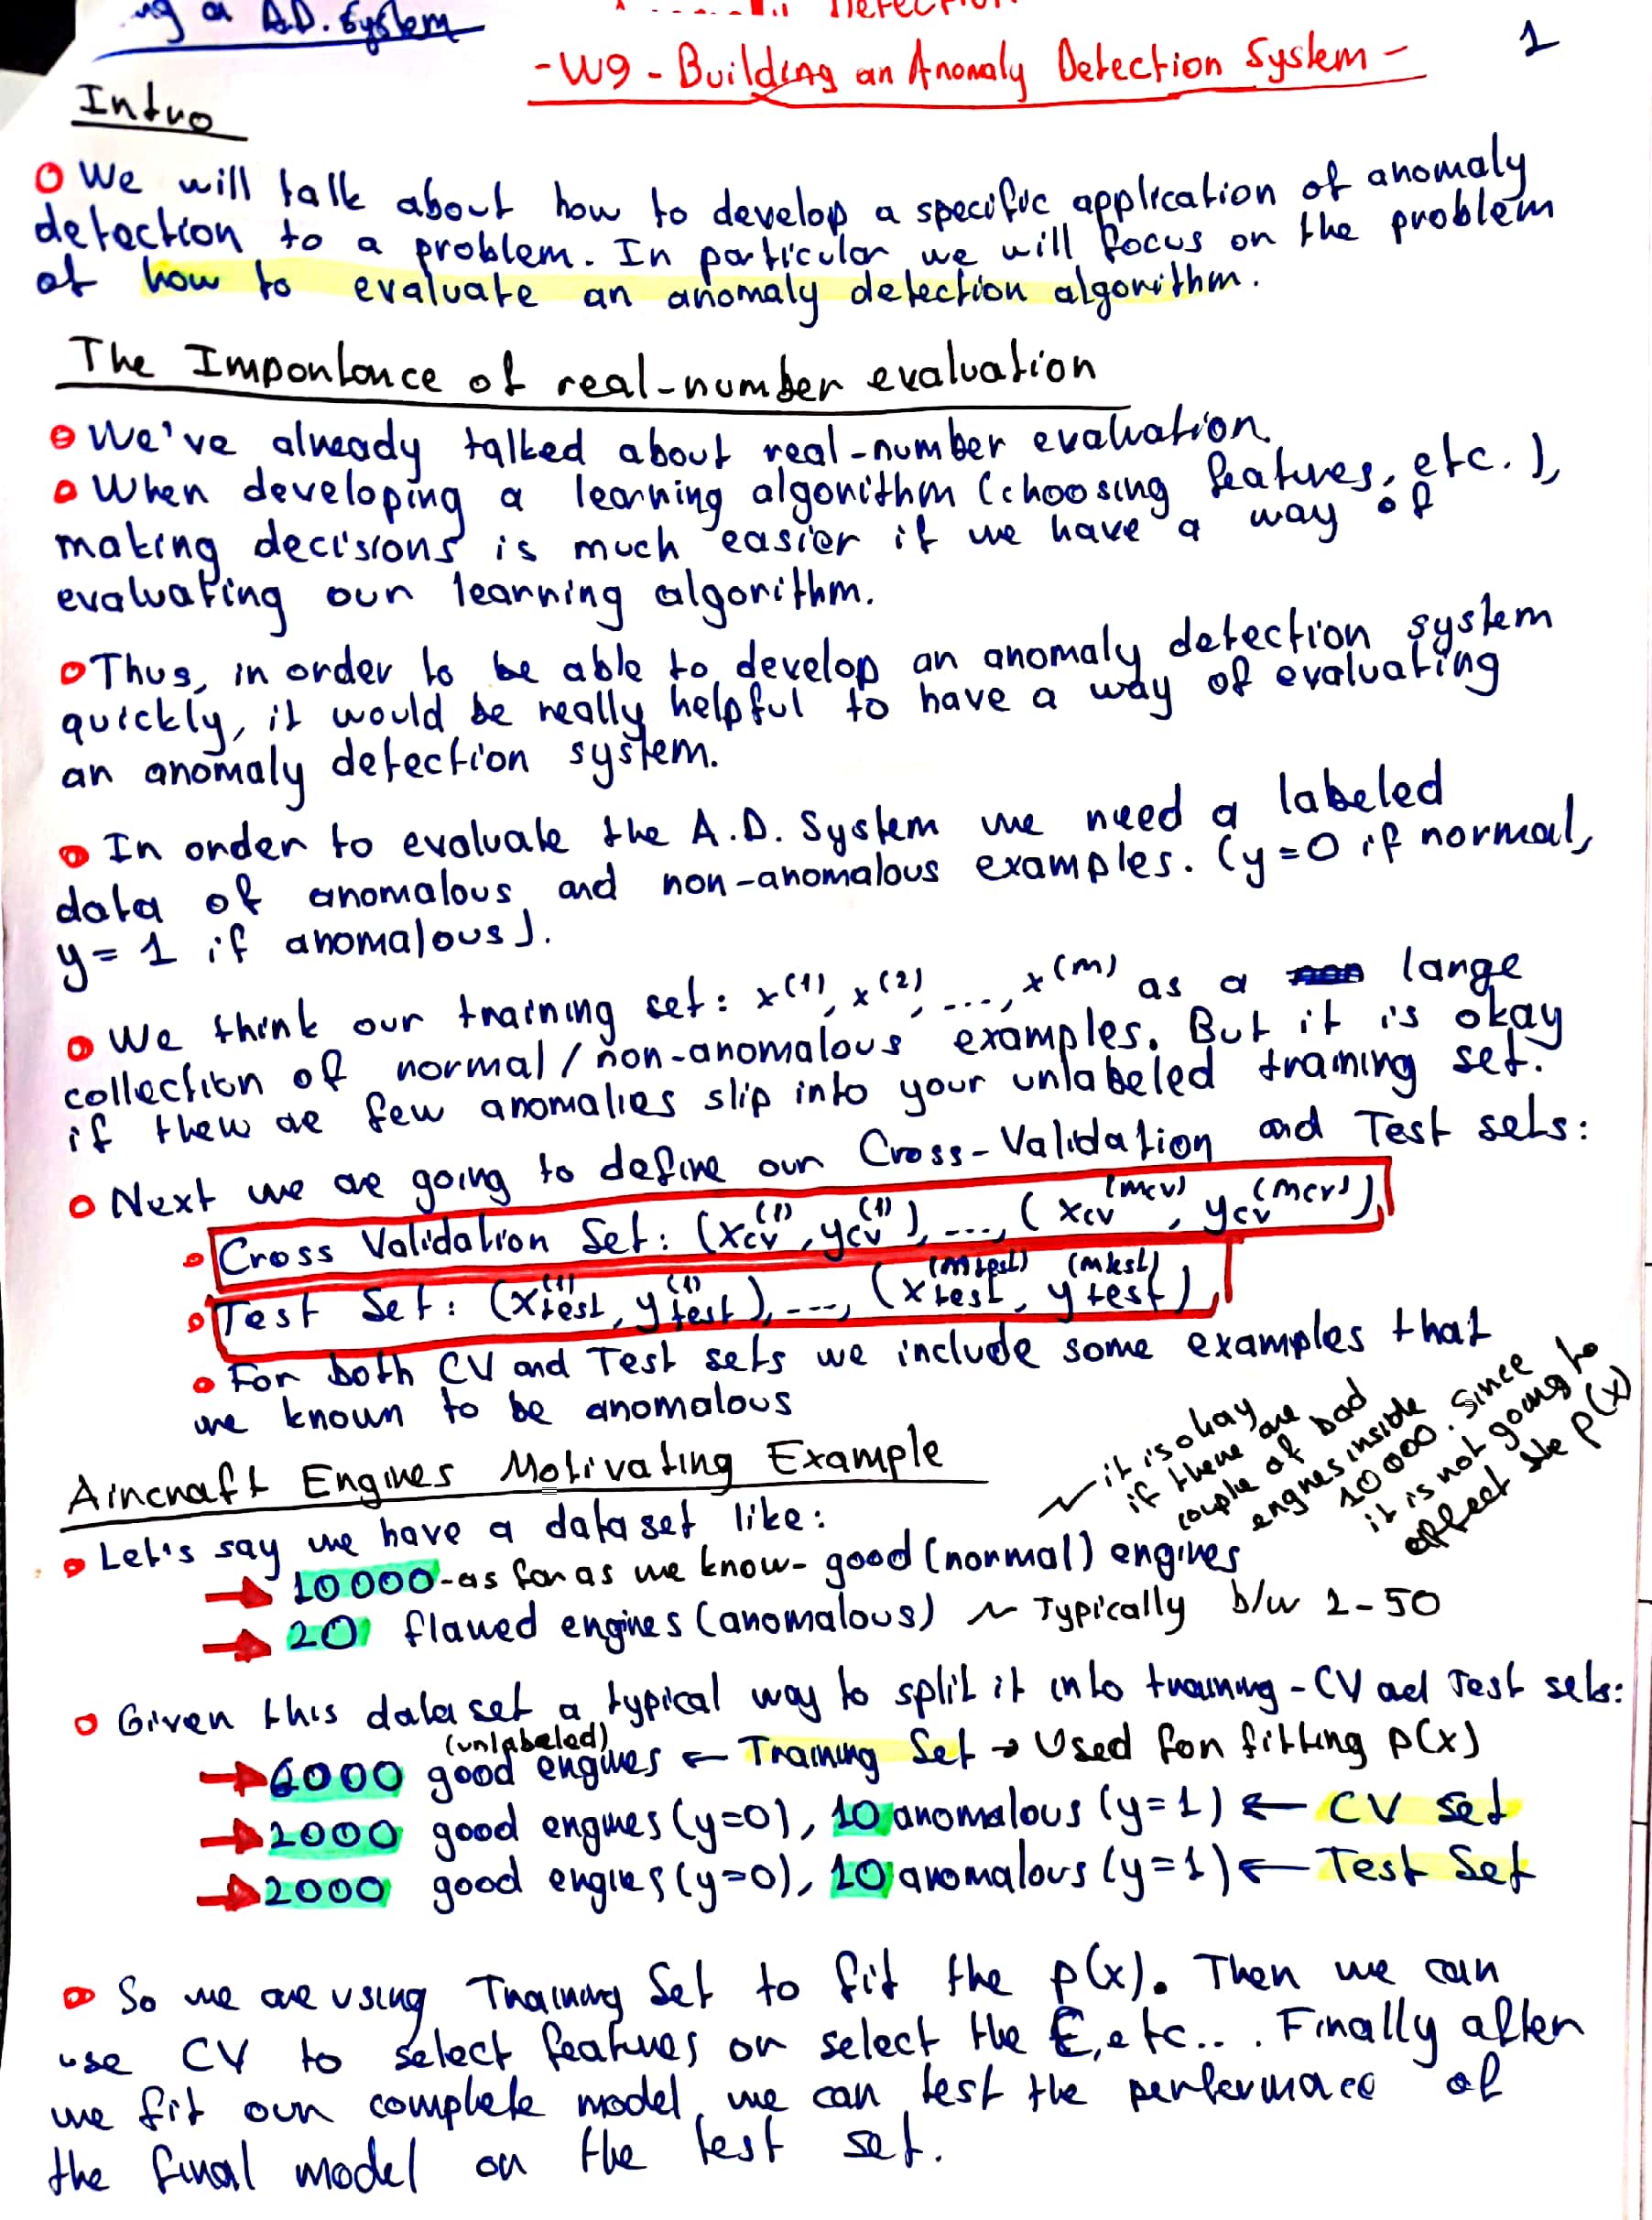 ng a A.D. System
Detection
-W9 - Building an Anomaly Detection System -
1
Intro
We will talk about how to develop a specific application of anomaly
detection to a problem. In particular we will focus on the problem
of how to evaluate an anomaly detection algorithm.
The Importance of real-number evaluation
We've already talked about real-number evaluation.
When developing a learning algorithm (choosing features, etc.),
making decisions is much easier if we have a way of
evaluating our learning algorithm.
Thus, in order to be able to develop an anomaly detection system
quickly, it would be really helpful to have a way of evaluating
an anomaly detection system.
In order to evaluate the A.D. System we need a labeled
data of anomalous and non-anomalous examples. (y=0 if normal,
y=1 if anomalous).
We think our training set: x^(1), x^(2), ..., x^(m) as a large
collection of normal/non-anomalous examples. But it is okay
if there ae few anomalies slip into your unlabeled training set.
Next we are going to define our Cross-Validation and Test sets:
Cross Validation Set: (x_cv^(1), y_cv^(1)), ..., (x_cv^(mcv), y_cv^(mcv)),
Test Set: (x_test^(1), y_test^(1)), ..., (x_test^(mtest), y_test^(mtest)),
For both CV and Test sets we include some examples that
we known to be anomalous
Aircraft Engines Motivating Example
Let's say we have a dataset like:
10000-as far as we know- good (normal) engines
it is okay
if there are
couple of bad
engines inside
10000. Since
it is not going to
affect the p(x)
20 flawed engines (anomalous) ~ Typically b/w 2-50
Given this dataset a typical way to split it into training - CV ad Test sets:
(unlabeled)
6000 good engines ← Training Set → Used for fitting p(x)
2000 good engines (y=0), 10 anomalous (y=1) ← CV Set
2000 good engines (y=0), 10 anomalous (y=1) ← Test Set
So we are using Training Set to fit the p(x). Then we can
use CV to select features or select the Ɛ, etc... Finally after
we fit our complete model, we can test the performace of
the final model on the test set.